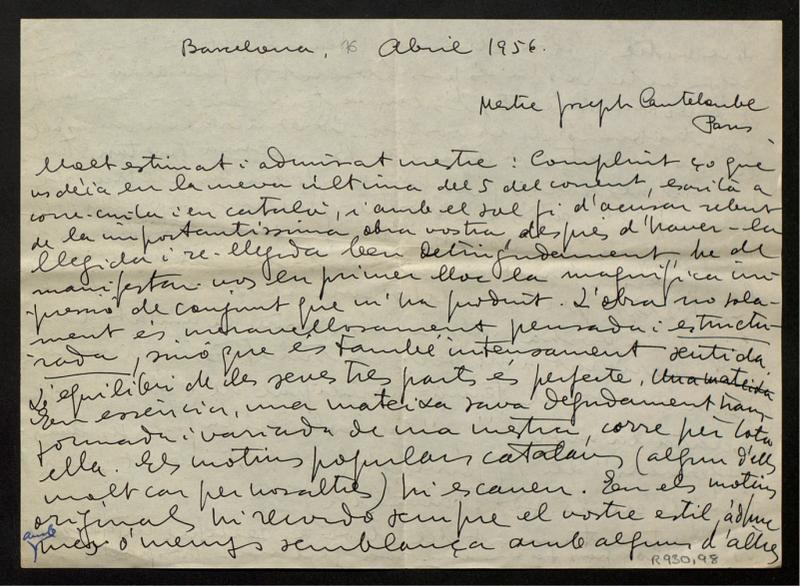 Barcelona, 16 Abril 1956.
Mestre Joseph Canteloube
Paris
Molt estimat i admirat mestre: Complint ço que
us déia en la meva última del 5 del corrent, escrita a
corre-cuita i en català, i amb el sol fi d'acusar rebut
de la importantíssima obra vostra, després d'haver-la
llegida i re-llegida ben detingudament, he de
manifestar-vos en primer lloc la magnífica im-
pressió de conjunt que m'ha produit. L'obra no sola-
ment és meravellosament pensada i estructu-
rada, sinó que és també intensament sentida
L'equilibri de les seves tres parts és perfecte. Una mateixa
En essència, una mateixa sava degudament trans
formada i variada de mà mestra, corre per tota
ella. Els motius populars catalans (algun d'ells
molt car per nosaltres) hi escauen. En els motius
originals hi recordo sempre el vostre estil, àdhuc
amb
més o menys semblança amb alguns d'altres
R930,98